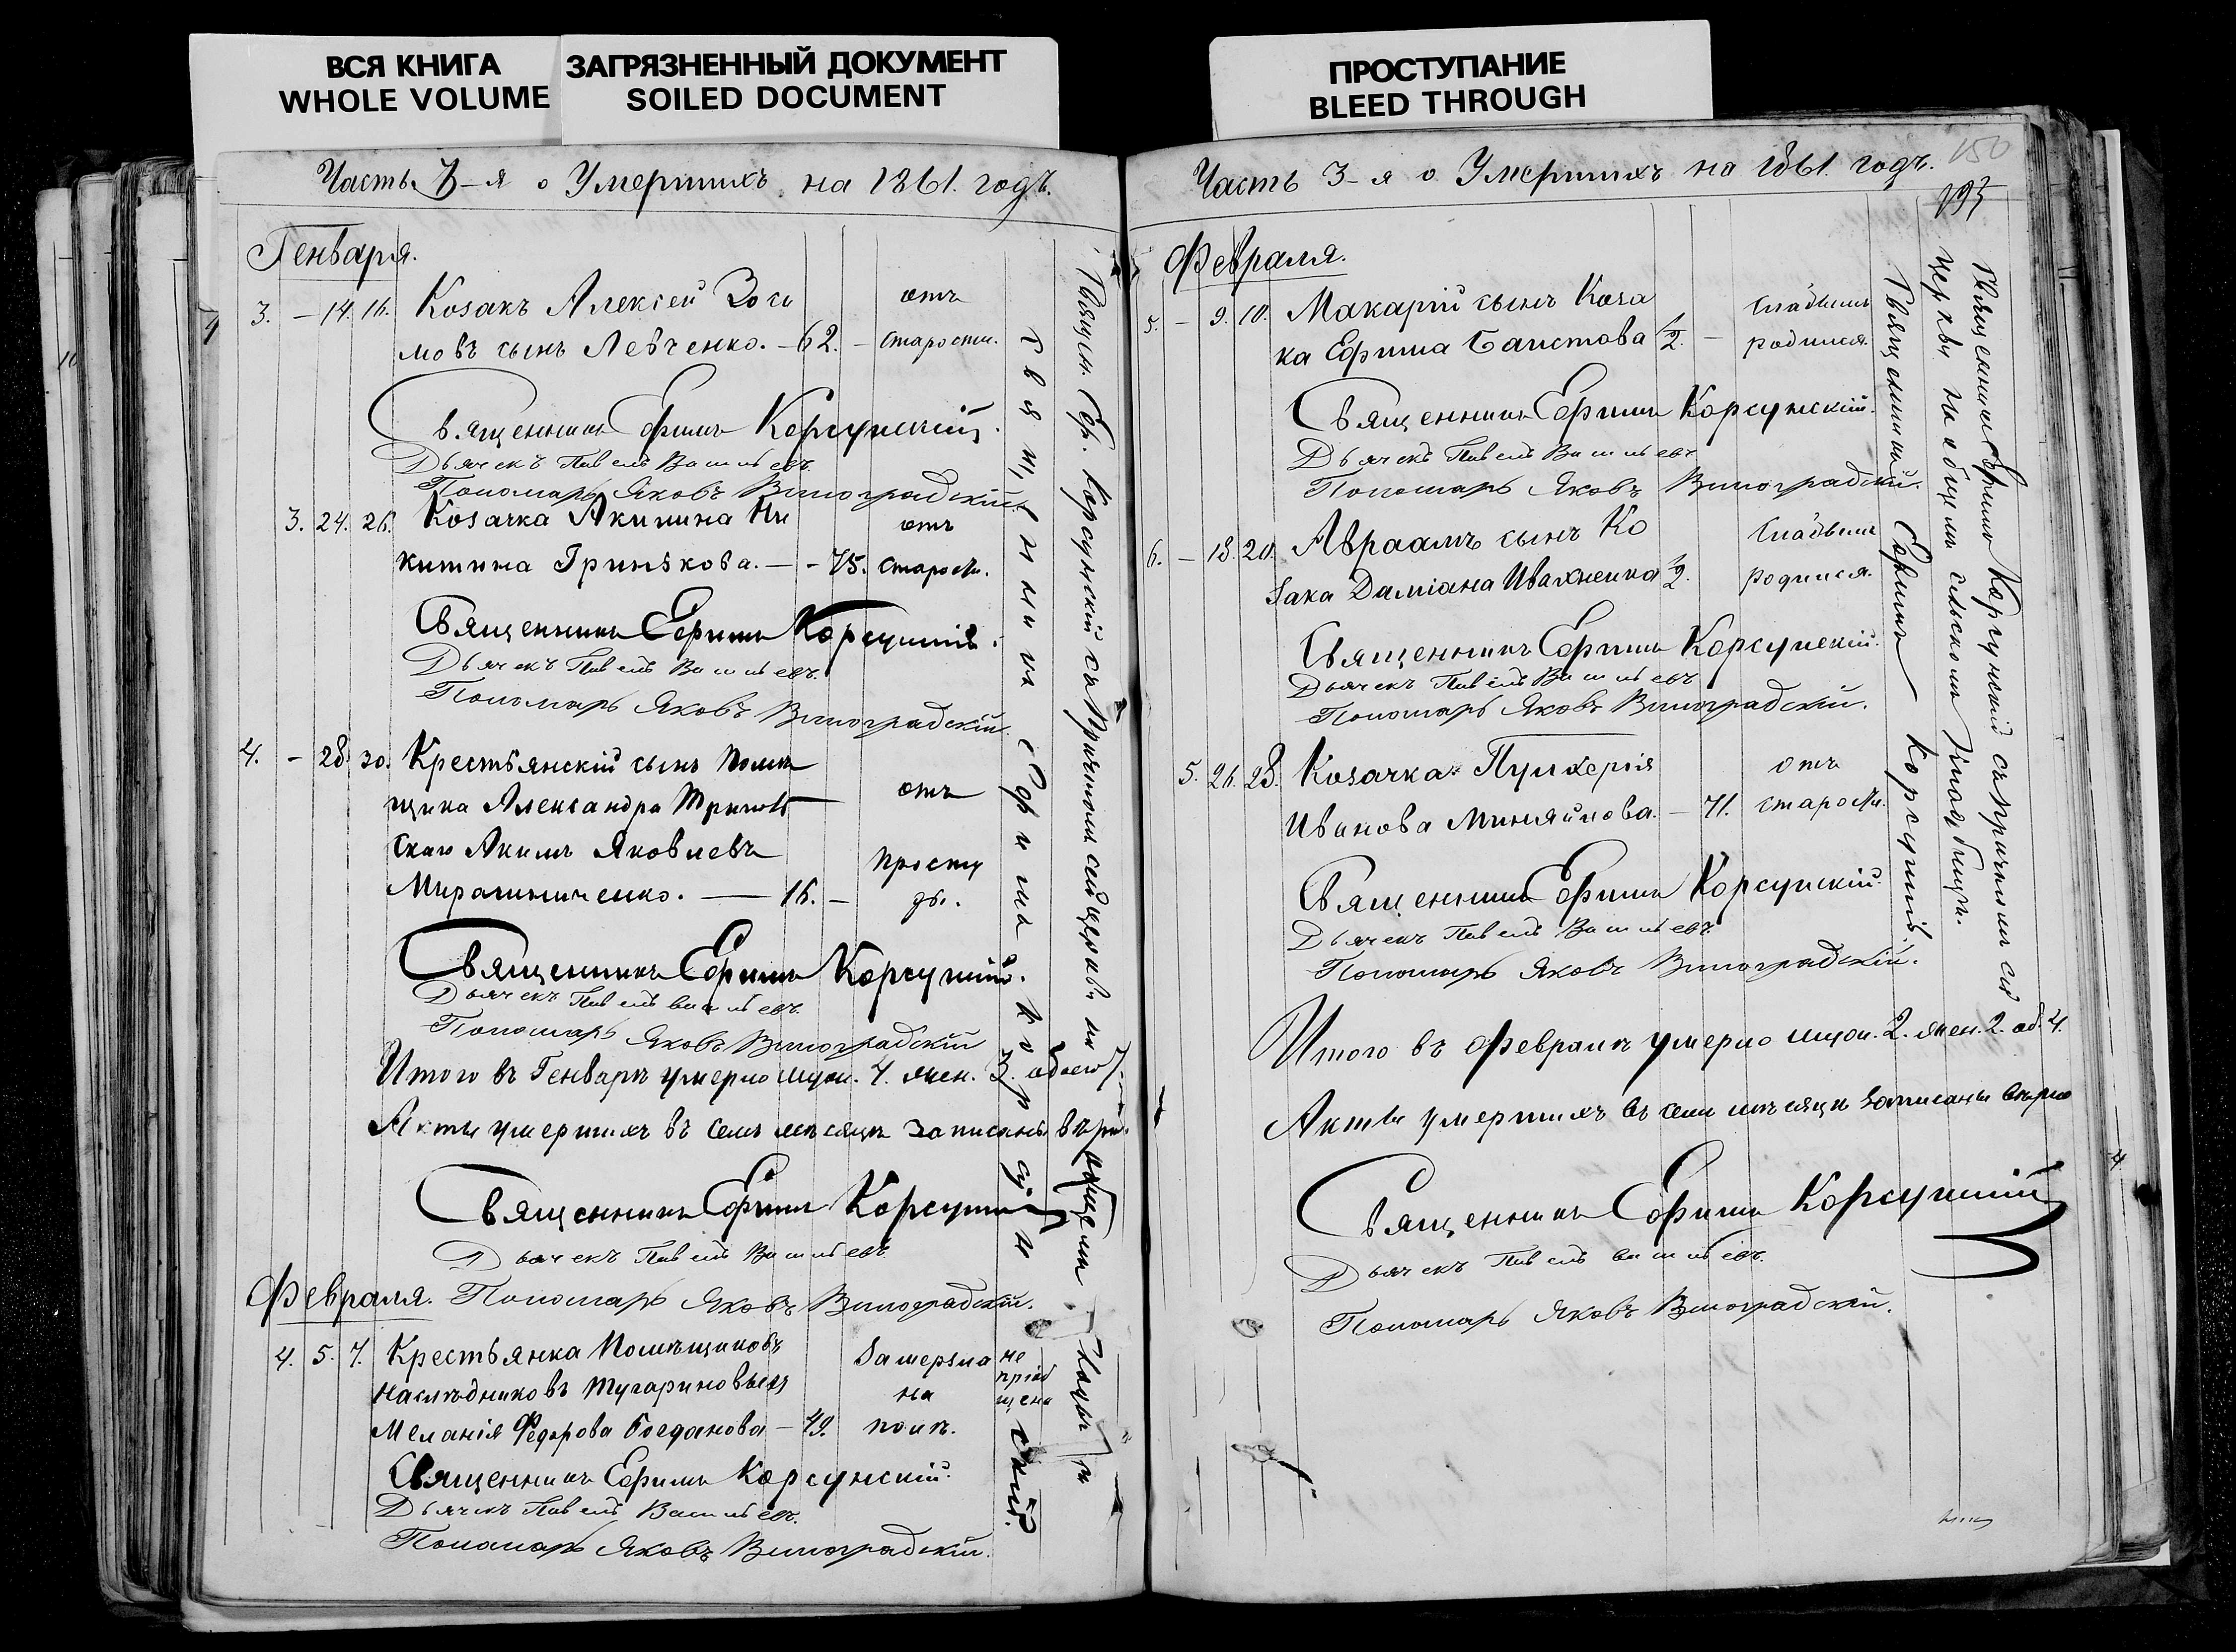 ВСЯ КНИГА
WHOLE VOLUME
ЗАГРЯЗНЕННЫЙ ДОКУМЕНТ
SOILED DOCUMENT
ПРОСТУПАНИЕ
BLEED THROUGH
Часть 3-я о Умершихъ на 1861. годъ.
Генваря.
3. – 14. 16. Козакъ Алексей Зоси
мовъ сынъ Левченко. – 62. – отъ
старости.
Священникъ Ефимъ Корсунскій.
Дьячекъ Павелъ Васильевъ.
Пономарь Яковъ Виноградскій.
3. 24. 26. Козачка Акилина Ни
китина Гринѣкова. – – 75. отъ
старости.
Священникъ Ефимъ Корсунскій.
Дьячекъ Павелъ Васильевъ.
Пономарь Яковъ Виноградскій.
4. – 28. 30. Крестьянскій сынъ помѣ
щика Александра
скаго Акимъ Яковлевъ
Мирошниченко. – 16. – отъ
просту
ды.
Священникъ Ефимъ Корсунскій.
Дьячекъ Павелъ Васильевъ.
Пономарь Яковъ Виноградскій
Итого въ Генварѣ умерло муж. 4. жен. 3. обоего 7.
Акты умершихъ въ семъ мѣсяцѣ записаны вѣрно.
Священникъ Ефимъ Корсунскій
Дьячекъ Павелъ Васильевъ
Пономарь Яковъ Виноградскій.
Февраля.
4. 5. 7. Крестьянка помѣщиковъ
наслѣдниковъ Тугариновыхъ
Меланія Федорова Богданова – 49. замерзла
на
полѣ.
не
пріоб
щена
Священникъ Ефимъ Корсунскій.
Дьячекъ Павелъ Васильевъ.
Пономарь Яковъ Виноградскій.
Священника Ефима Корсунскій
Священ. Еф. Корсунскій съ Причтомъ сей церкви на общемъ
Часть 3-я о Умершихъ на 1861. годъ.
150
193
Февраля.
5. – 9. 10. Макарій сынъ Коза
ка Ефима Баистова 1/2. – слабымъ
родился.
Священникъ Ефимъ Корсунскій.
Дьячекъ Павелъ Васильевъ.
Пономарь Яковъ Виноградскій.
6. – 18. 20. Авраамъ сынъ Ко
зака Даміана Ивахненка 1/2. слабымъ
родился.
Священникъ Ефимъ Корсунскій.
Дьячекъ Павелъ Васильевъ
Пономарь Яковъ Виноградскій.
5. 26. 28. Козачка Пулхерія
Иванова Миняйлова. – 71. отъ
старости.
Священникъ Ефимъ Корсунскій.
Дьячекъ Павелъ Васильевъ.
Пономарь Яковъ Виноградскій.
Священникъ Ефимъ Корсунскій.
Священникъ Ефимъ Корсунскій съ причтомъ сей
церкви на общемъ сельскомъ кладбищѣ.
Итого въ Февралѣ умерло муж. 2. жен. 2. об. 4.
Акты умершихъ въ семъ мѣсяцѣ записаны вѣрно
Священникъ Ефимъ Корсунскій
Дьячекъ Павелъ Васильевъ.
Пономарь Яковъ Виноградскій.